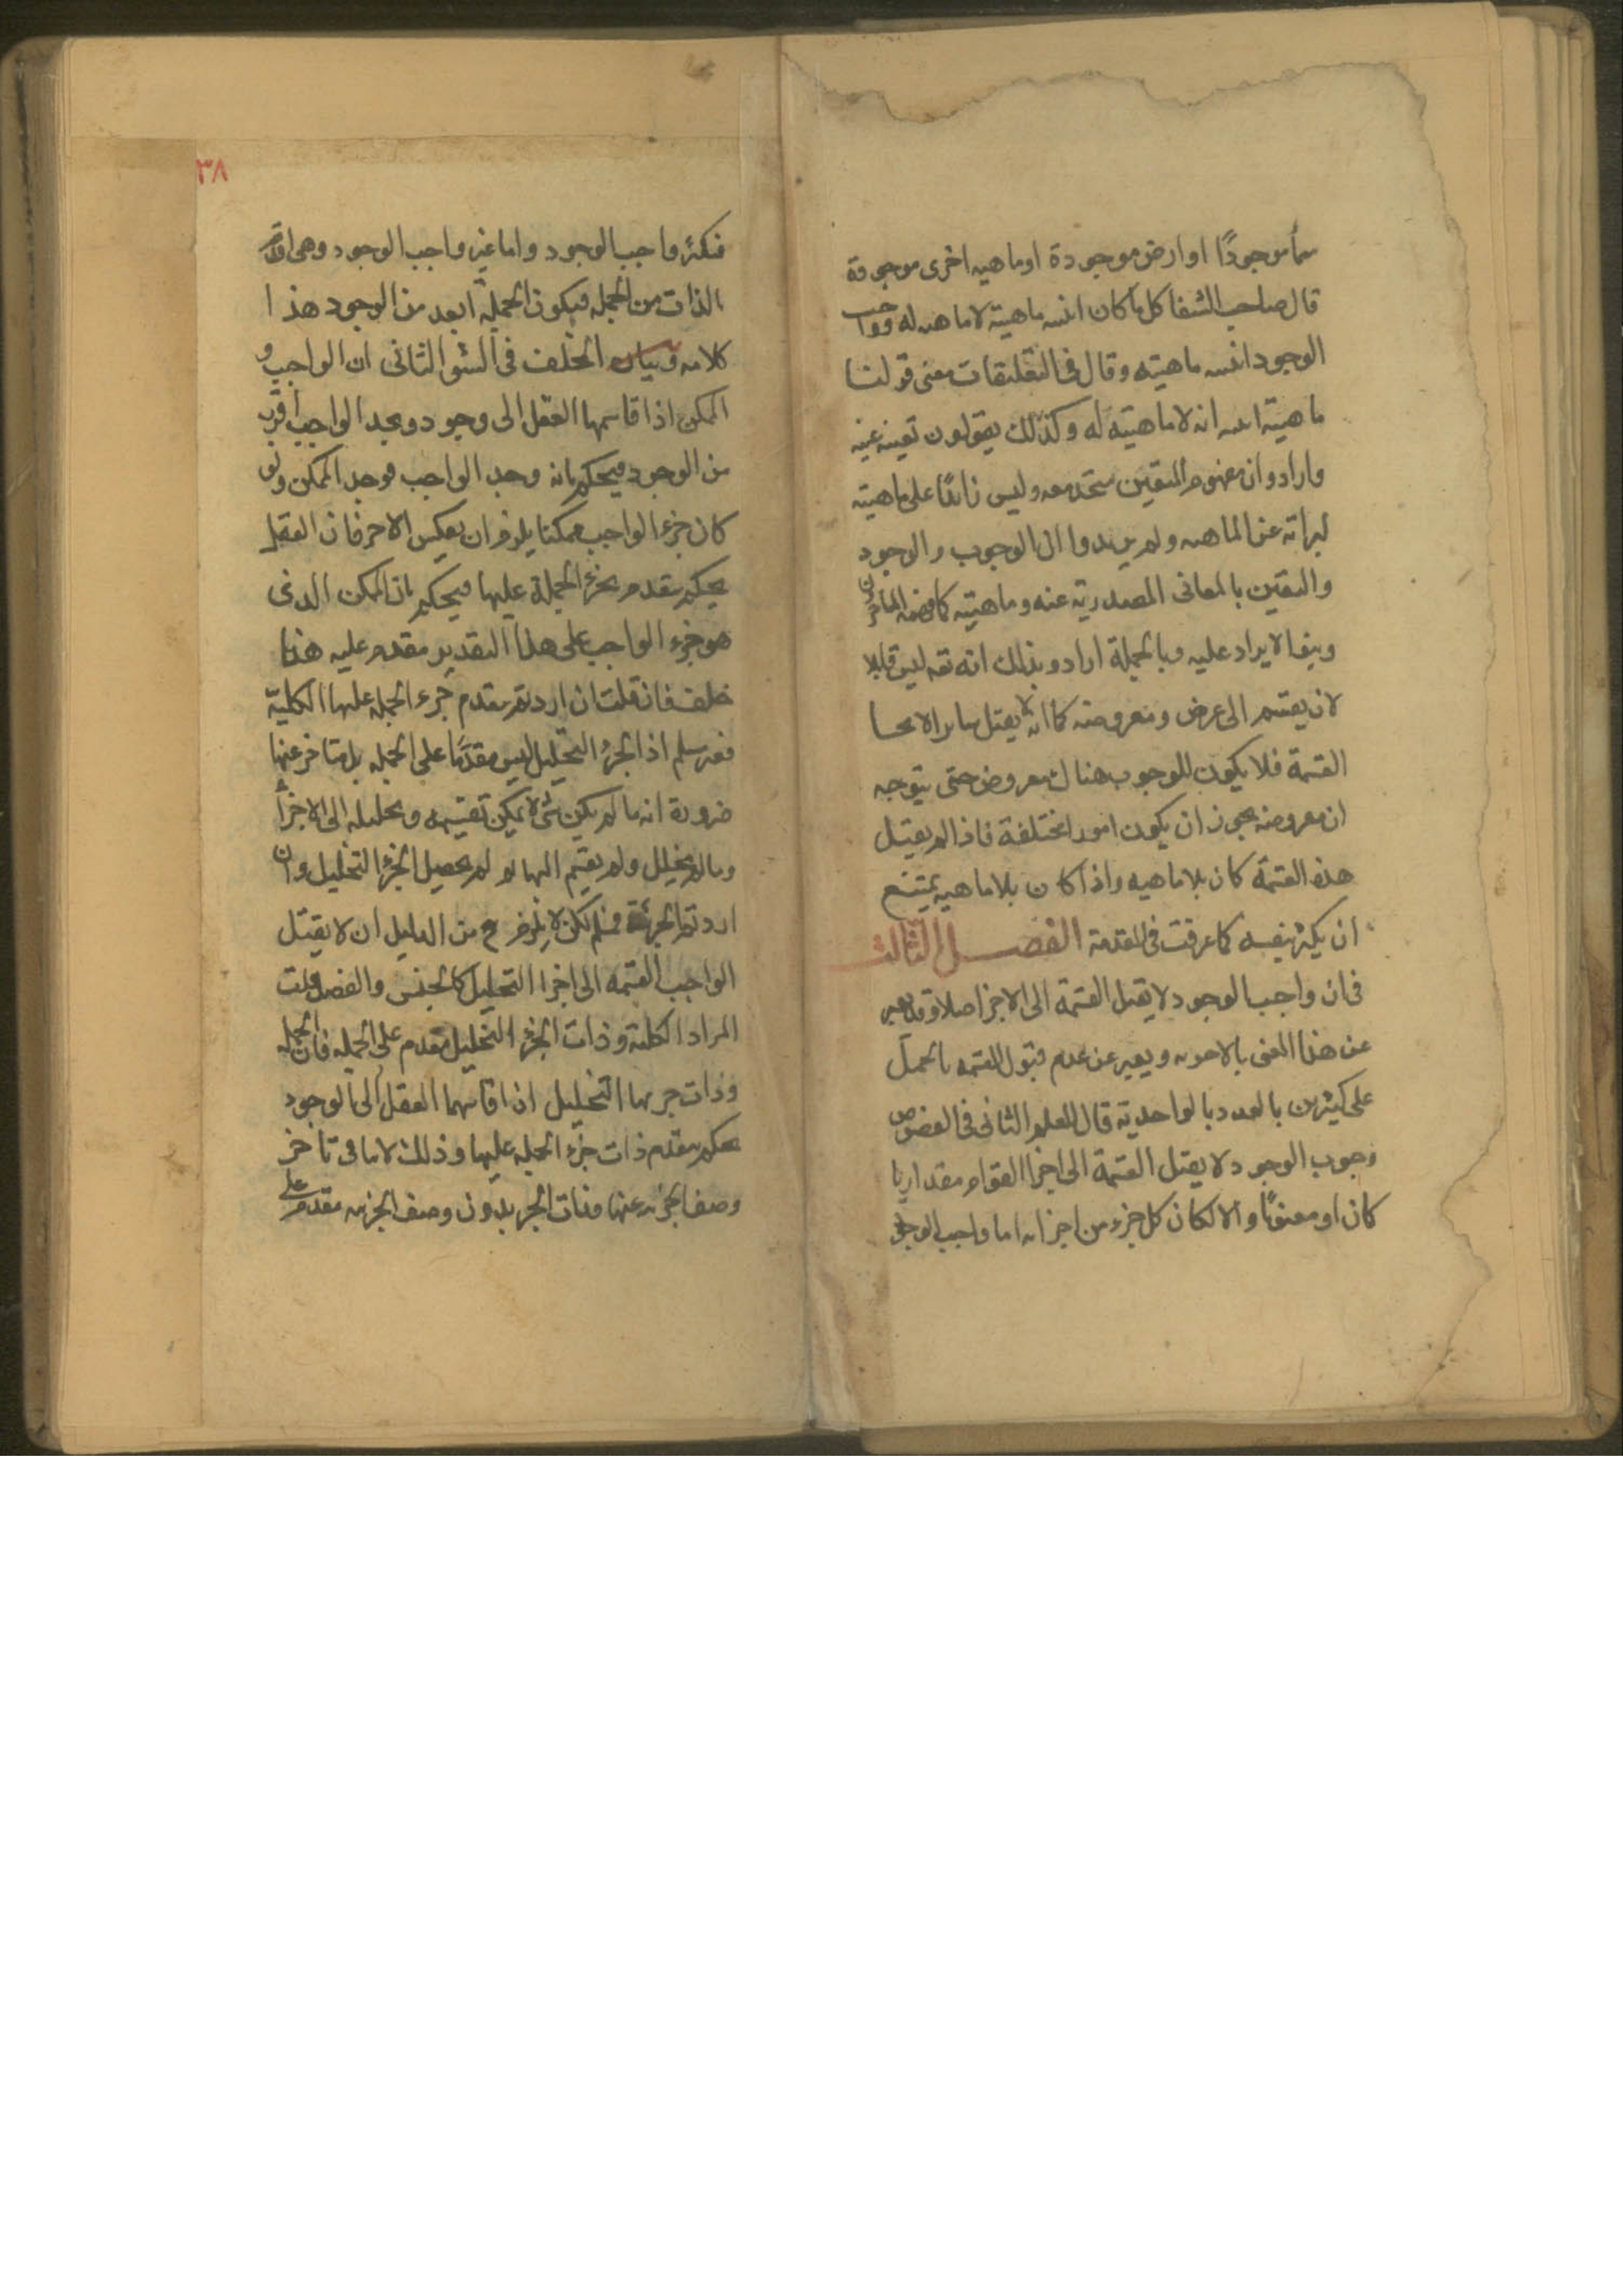 سمأ موجودًا او ارض موجودة او ماهيه اخرى موجودة
قال صاحب الشفا كل ما كان انيته ماهيته لا ماهيه له وواجب
الوجود انيته ماهيته وقال فى التعليقات معنى قولنا
ماهيته انيته انه لا ماهيته له وكذلك يقولون تعينه عينه
وارادوا ان مفهوم التعين متحد معه وليس زائدًا على ماهيته
لبراته عن الماهيه ولم يريدوا ان الوجوب والوجود
والتعين بالمعانى المصدرية عينه وماهيته كما فهمه المتاخرون
وبنوا الايراد عليه وبالجملة ارادو بذلك انه تعه ليس قابلا
لان يقسم الى عرض ومعروضه كما انه لا يقبل ساير انحا
القسمة فلا يكون للوجوب هناك معروض حتى يتوجه
ان معروضه يجوز ان يكون امورا مختلفة فاذا لم يقبل
هذه القسمة كان بلا ماهيه واذا كان بلا ماهيه يمتنع
ان يكثر بنفسه كما عرفت فى المقدمة الفصل الثالث
فى ان واجب الوجود لا يقبل القسمة الى الاجزا اصلا وقد يعبر
عن هذا المعنى بالاحديه ويعبر عن عدم قبول القسمه بالحمل
على كثيرين بالعدد بالواحدية قال المعلم الثانى فى الفصوص
وجوب الوجود لا يقبل القسمة الى اجزا القوام مقداريا
كان او معنويًا والا لكان كل جزء من اجزائه اما واجب الوجود
٣٨
فتكثر واجب الوجود واما غير واجب الوجود وهى اقدم
بالذات من الجمله فيكون الجملة ابعد من الوجود هذا
كلامه وبيان الخلف فى الشق الثانى ان الواجب و
الممكن اذا قاسهما العقل الى وجود ويجد الواجب اقرب
من الوجود فيحكم بانه وجد الواجب فوجد الممكن ولو
كان جزء الواجب ممكنا يلزم ان يعكس الامر فان العقل
يحكم بتقدم جزء الجملة عليها فيحكم بان الممكن الذى
هو جزء الواجب على هذا التقدير مقدم عليه هذا
خلف فان قلت ان اردتم بتقدم جزء الجمله عليها الكلية
فغير مسلم اذ الجزء التحليلى ليس مقدمًا على الجمله بل متاخر عنها
ضرورة انه ما لم يكن شئ لا يمكن تقسيمه وتحليله الى الاجزأ
وما لم يحلل ولم يقسم اليها لم يحصل الجزء التحليلى وان
اردتم الجزئية فمسلم لكن لا يلزم ح من الدليل ان لا يقبل
الواجب القسمه الى اجزا التحليل كالجنس والفصل قلت
المراد الكلية وذات الجزء التحليلى مقدم على الجمله فان الجمله
وذات جزئها التحليلى اذا قاسهما العقل الى الوجود
يحكم بتقدم ذات جزء الجمله عليها وذلك لا ينافى تاخر
وصف الجزئيه عنها فذات الجزء بدون وصف الجزئيه مقدم على